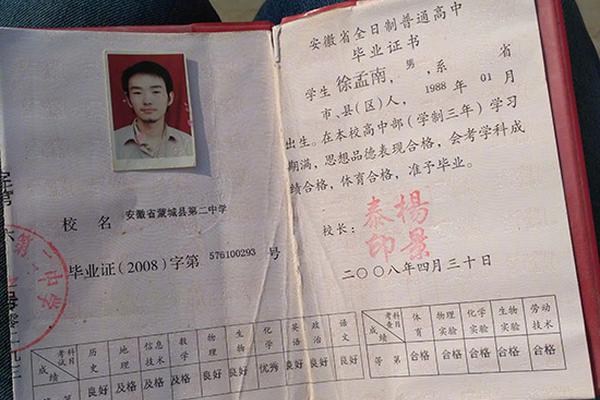 校 名 安徽省蒙城县第二中学
毕业证(2008)字第 576100293 号
第二中学
考试科目 历史 地理 信息技术 数学 物理 生物 化学 英语 政治 语文
成绩 良好 及格 及格 及格 良好 良好 优秀 良好 良好 良好
安徽省全日制普通高中
毕业证书
学生 徐孟南, 男, 系 省
市、县(区)人, 1988 年 01 月
出生。在本校高中部(学制三年)学习
期满, 思想品德表现合格, 会考学科成
绩合格, 体育合格, 准予毕业。
校长: 杨景泰印
二〇〇八年四月三十日
考查科目 体育 物理实验 化学实验 生物实验 劳动技术
成绩 等第 合格 合格 合格 合格 合格